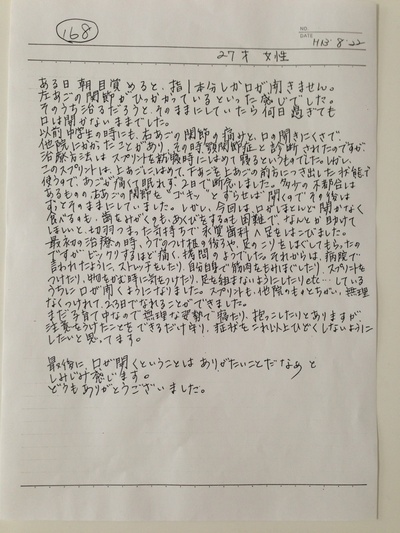 168
NO.
DATE H13・8・22
27才 女性
ある日朝目覚めると、指1本分しか口が開きません。
左あごの関節がひっかかっているといった感じでした。
そのうち治るだろうと、そのままにしていたら何日過ぎても
口は開かないままでした。
以前中学生の時にも、右あごの関節の痛みと、口の開きにくさで、
他院にかかったことがあり、その時顎関節症と診断されたのですが
治療方法はスプリントを就寝時にはめて寝るというものでした。しかし、
このスプリントは、上あごにはめて、下あごを上あごの前方につき出した状態で
使うので、あごが痛くて眠れず、2日で断念しました。多少の不都合は
あるものの、右あごの関節を "ゴキッ" とずらせば開くのでその後は
ずっとそのままにしていました。しかし、今回は口がほとんど開かなく
食べるのも、歯をみがくのも、あくびをするのも困難で、なんとか助けて
ほしいと、切羽つまった気持ちで永質歯科へ足をはこびました。
最初の治療の時、うでのつけ根の後ろや、足のこりをほぐしてもらったの
ですが、ビックリするほど痛く、拷問のようでした。それからは、病院で
言われたように、ストレッチをしたり、自分自身で筋肉をもみほぐしたり、スプリントを
つけたり、物をかむ時に気をつけたり、足を組まないようにしたりetc…している
うちに口が開くようになりました。スプリントも、他院のものとちがい、無理
なくつけれて、2、3日でなれることができました。
まだ3才で手中なので無理な姿勢で寝たり、抱っこしたりとありますが、
注意をうけたことをできるだけ守り、症状をこれ以上ひどくしないように
したいと思ってます。
最後に、口が開くということは ありがたいことだなぁと
しみじみ感じます。
どうもありがとうございました。